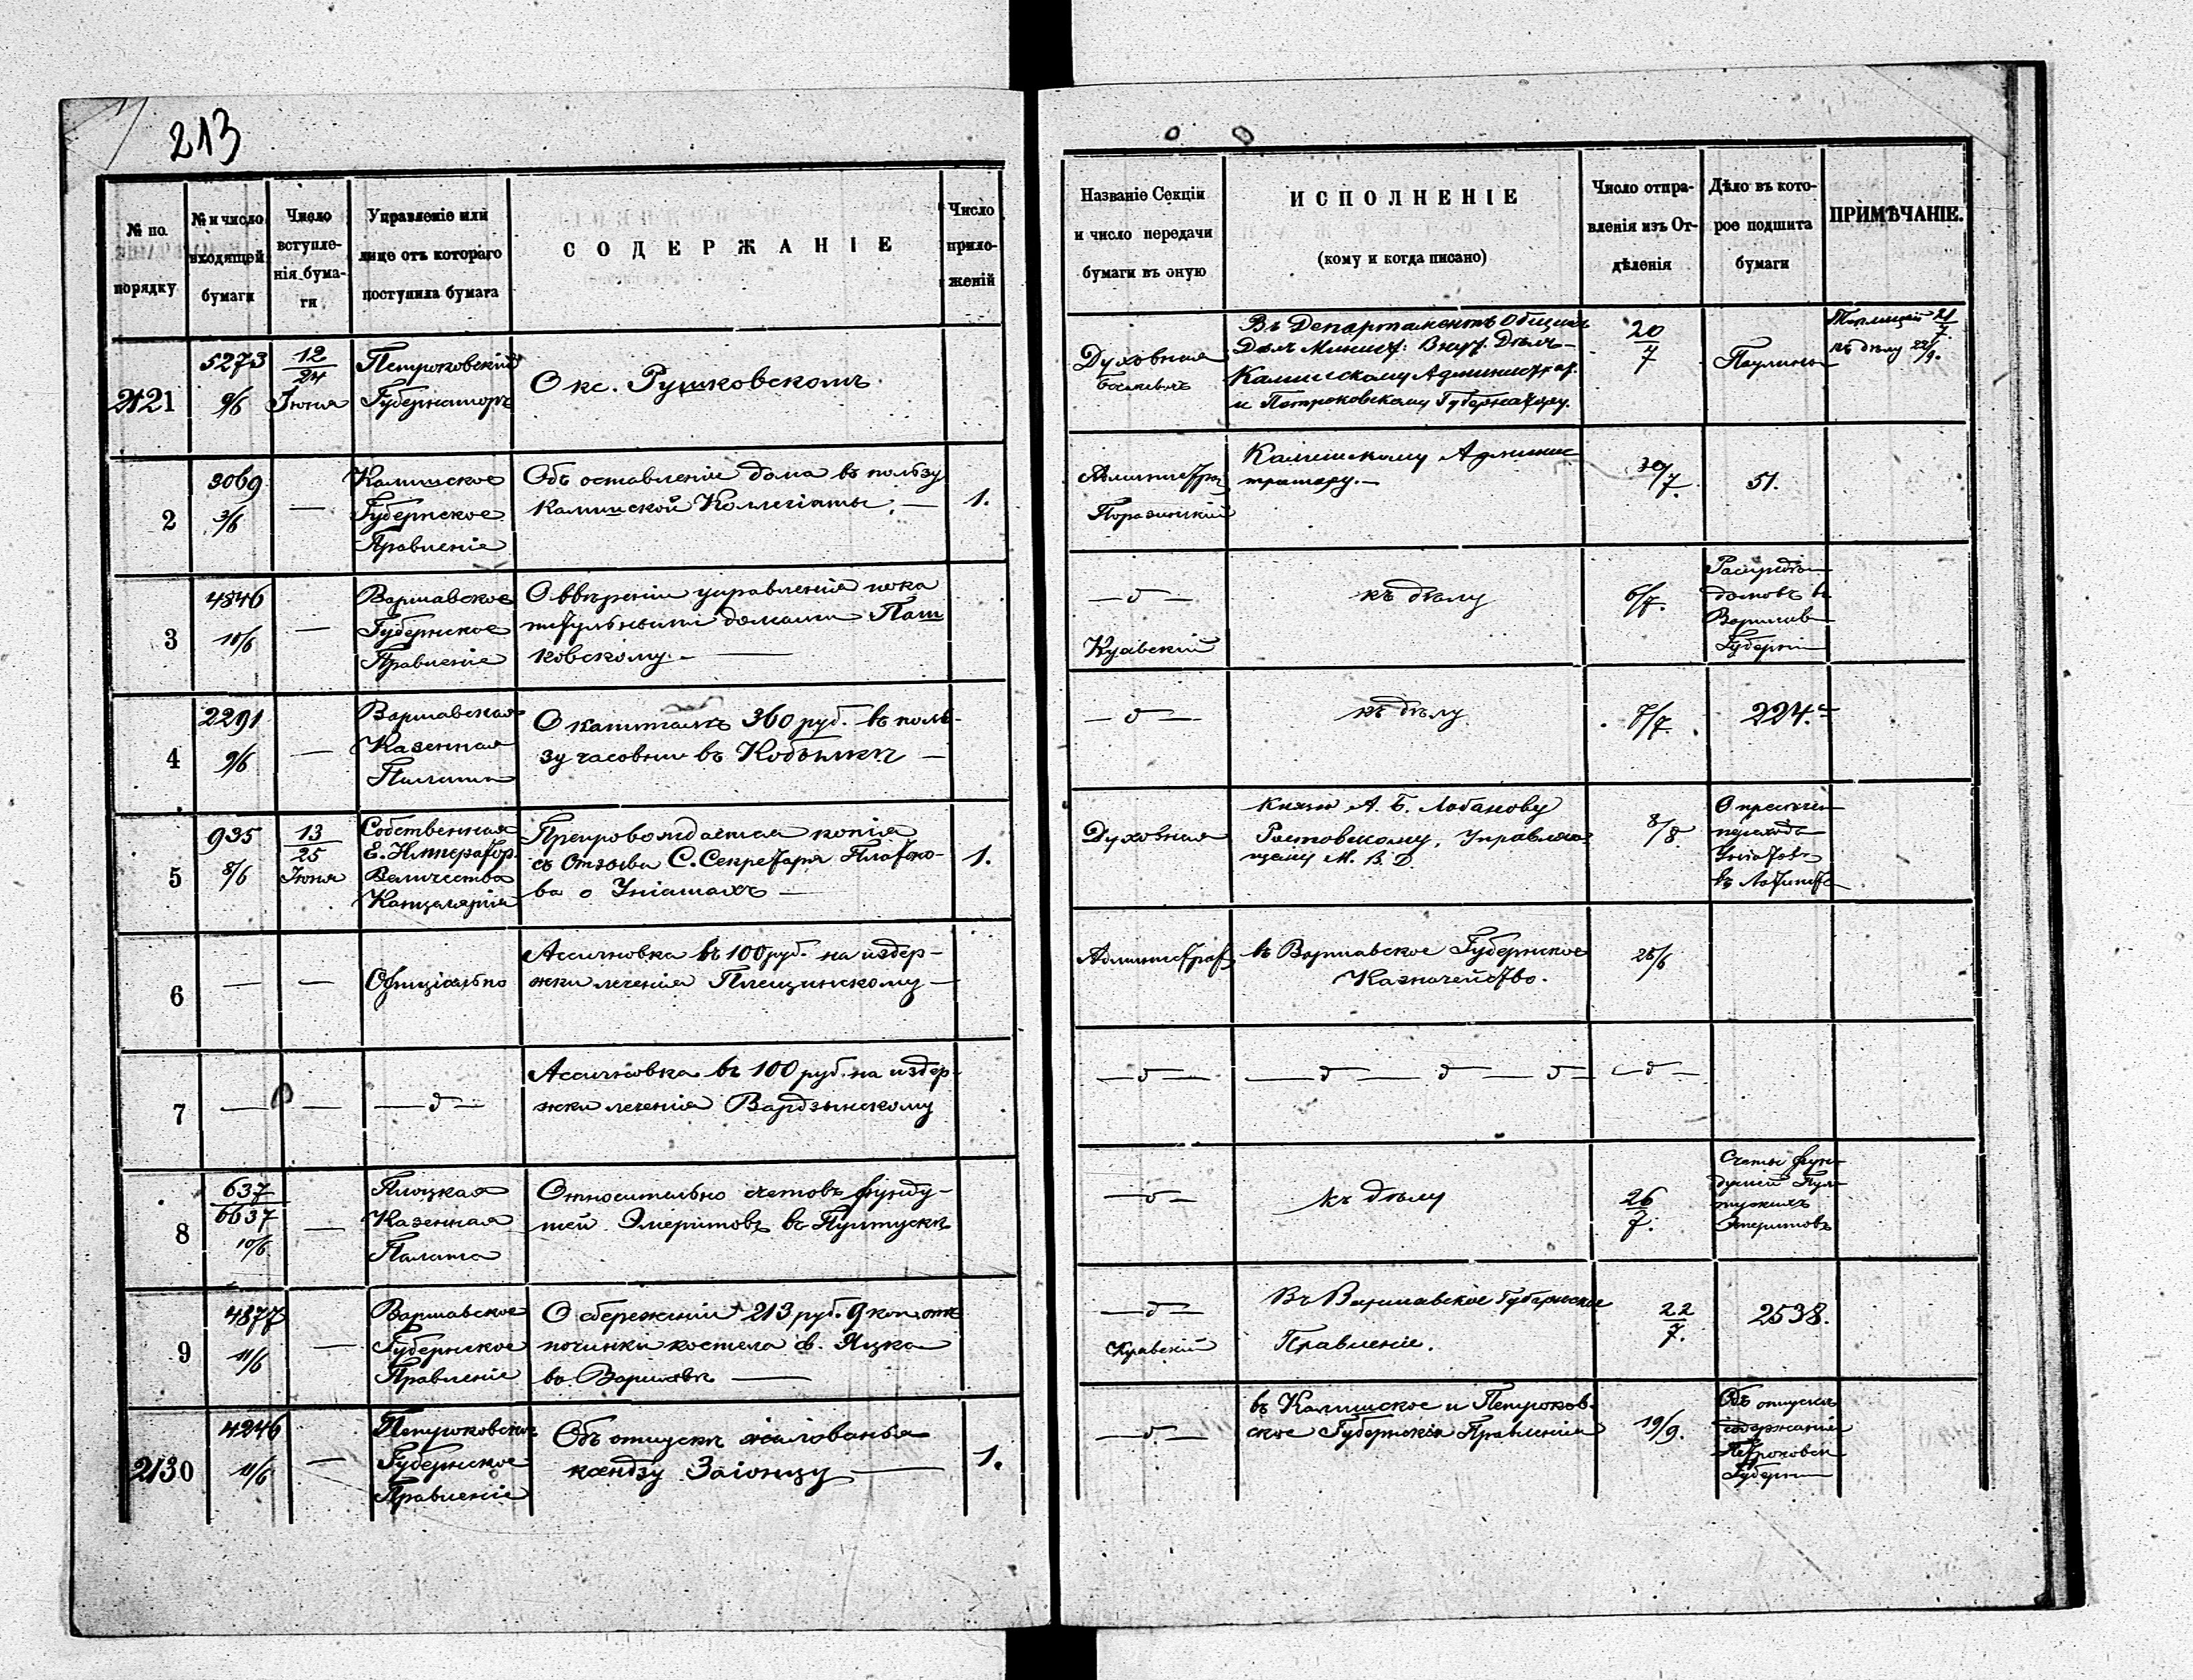 213
№ по порядку
№ и число входящей бумаги
Число вступленія бумаги
Управленіе или лице отъ котораго поступила бумага
СОДЕРЖАНІЕ
Число приложеній
Названіе Секціи и число передачи бумаги въ оную
ИСПОЛНЕНІЕ
(кому и когда писано)
Число отправленія изъ Отдѣленія
Дѣло въ которое подшита бумаги
ПРИМѢЧАНІЕ.
2121
5273
9/6
12/24
Іюня
Петроковскій
Губернаторъ
О кс. Рушковскомъ
Духовная
Въ Департаментъ Общихъ
Дѣлъ Минист: Внут. Дѣлъ—
Калишскому Администрат.
и Петроковскому Губернатору.
20/7
21/7
къ дѣлу 22/9.
2
3069
3/6
—
Калишское
Губернское
Правленіе
Объ оставленіи дома въ пользу
Калишской Коллегіаты. —
1.
Администрат
Калишскому Админис
тратору. —
30/7.
51.
3
4846
10/6
—
Варшавское
Губернское
Правленіе
О ввѣреніи управленія пока
ковскому. —
—д—
Куявскій
къ дѣлу
6/7.
домовъ въ
Варшав
Губерніи
4
2291
9/6
—
Варшавская
Казенная
Палата
О капиталѣ 360 руб. въ поль-
зу часовни въ Кобылкѣ —
—д—
къ дѣлу
7/7.
224.
5
935
8/6
13/25
Іюня
Собственная
Е. Император.
Величества
Канцелярія
Препровождается копія
съ Отзыва С. Секретаря Платоно-
ва о Уніатахъ —
1.
Духовная
Князю А. Б. Лобанову
Ростовскому, Управляю-
щему М. В. Д
8/8.
О пресѣчен
перехода
Уніатовъ
въ Латинст
6
—
—
Офиціально
Ассигновка въ 100 руб. на издер-
жки леченія Плещинскому —
Администрат
въ Варшавское Губернское
Казначейство.
25/6
7
—
—
—д—
Ассигновка въ 100 руб. на издер-
жки леченія Вардзынскому
—д—
—д— д — д—
—д—
8
637
6637
10/6
—
Плоцкая
Казенная
Палата
Относительно счетовъ фунду-
шей Эмеритовъ въ Пултускѣ
—д—
къ дѣлу
26/7.
Счеты фун-
душей Пул-
тускихъ
Эмеритовъ
9
4877
11/6
—
Варшавское
Губернское
Правленіе
О сбереженіи 213 руб. 9 коп. отъ
починки костела св. Яцка
въ Варшавѣ —
—д—
Куявскій
Въ Варшавское Губернское
Правленіе.
22/7.
2538.
2130
4246
11/6
—
Петроковское
Губернское
Правленіе
Объ отпускѣ жалованья
ксендзу Заіонцу —
1.
—д—
въ Калишское и Петроков-
ское Губернскія Правленія
19/9.
Объ отпускѣ
содержанія
Петроковск
Губерніи